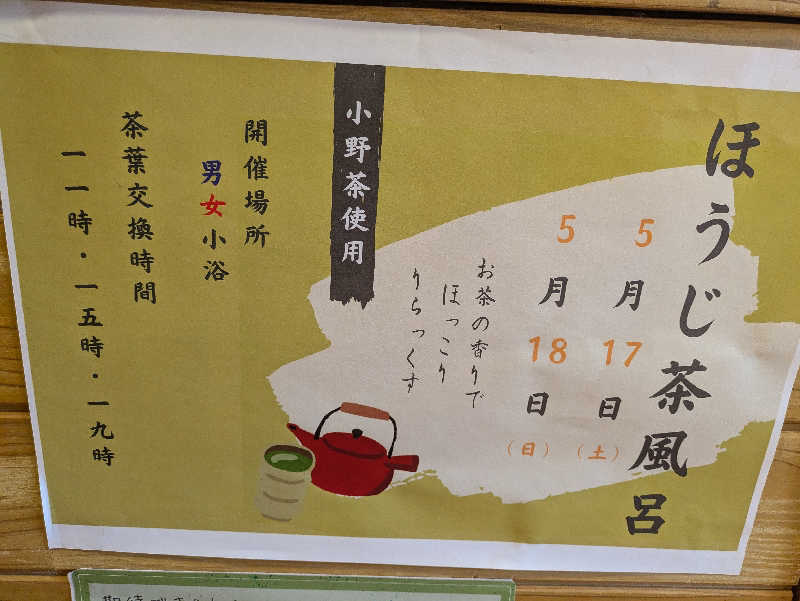 ほうじ茶風呂
5月17日(土)
5月18日(日)
お茶の香りで
ほっこり
りらっくす
小野茶使用
開催場所
男女小浴
茶葉交換時間
一一時・一五時・一九時